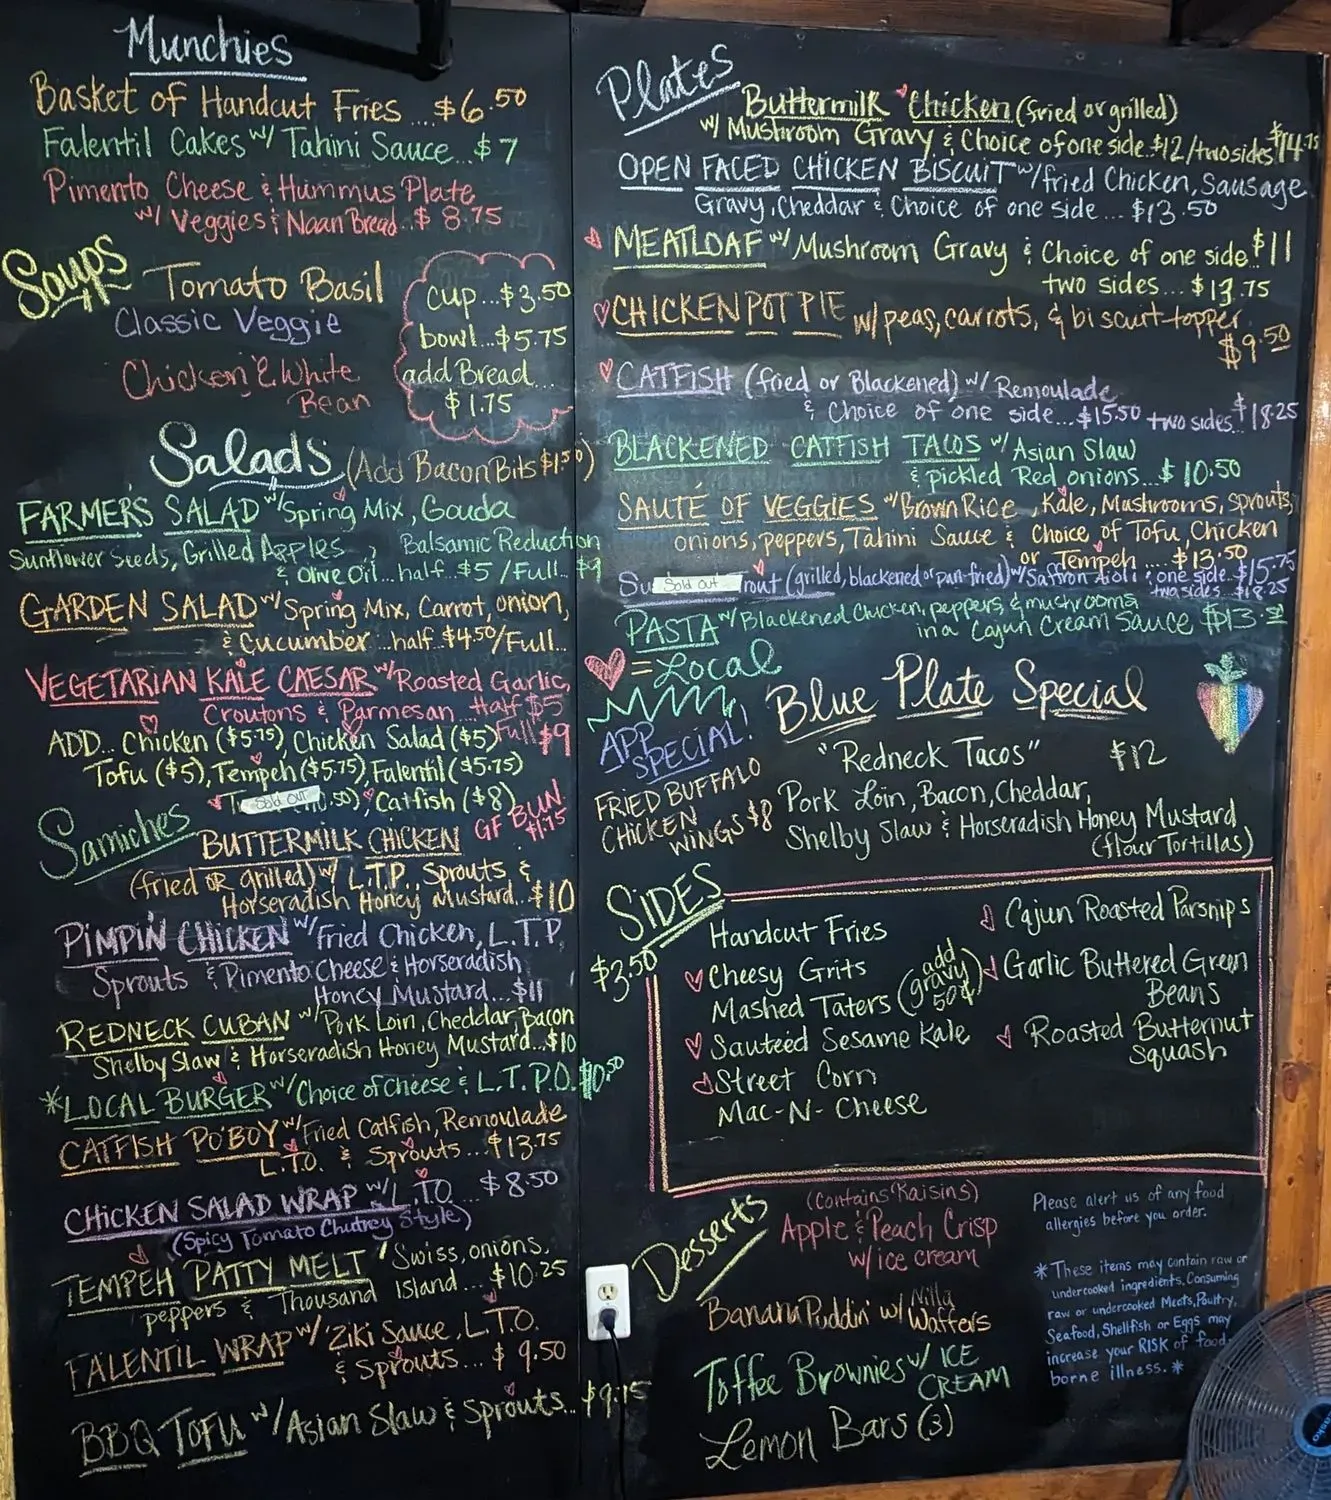 Munchies
Basket of Handcut Fries....$6.50
Falentil Cakes w/ Tahini Sauce...$7
Pimento Cheese & Hummus Plate
w/ Veggies & Naan Bread..$8.75
Soups
Tomato Basil
Classic Veggie
Chicken & White
Bean
cup...$3.50
bowl...$5.75
add Bread...
$1.75
Salads (Add Bacon Bits $1.50)
FARMER'S SALAD w/ Spring Mix, Gouda
Sunflower Seeds, Grilled Apples, Balsamic Reduction
& Olive Oil...half..$5/Full..$9
GARDEN SALAD w/ Spring Mix, Carrot, onion,
& Cucumber...half..$4.50/Full...
VEGETARIAN KALE CAESAR w/ Roasted Garlic,
Croutons & Parmesan...Half $5
Full $9
ADD... Chicken ($5.75), Chicken Salad ($5)
Tofu ($5), Tempeh ($5.75), Falentil ($5.75)
Sold out .50), Catfish ($8)
Samiches
GF BUN
$1.75
BUTTERMILK CHICKEN
(fried OR grilled) w/ L.T.P., Sprouts &
Horseradish Honey Mustard..$10
PIMPIN' CHICKEN w/ Fried Chicken, L.T.P,
Sprouts & Pimento Cheese & Horseradish
Honey Mustard...$11
REDNECK CUBAN w/ Pork Loin, Cheddar, Bacon
Shelby Slaw & Horseradish Honey Mustard...$10
*LOCAL BURGER w/ Choice of Cheese & L.T.P.O. $10.50
CATFISH PO'BOY w/ Fried Catfish, Remoulade
L.T.O. & Sprouts...$13.75
CHICKEN SALAD WRAP w/ L.T.O...$8.50
(Spicy Tomato Chutney Style)
TEMPEH PATTY MELT / Swiss, onions,
peppers & Thousand Island....$10.25
FALENTIL WRAP w/ Ziki Sauce, L.T.O.
& Sprouts...$9.50
BBQ TOFU w/ Asian Slaw & Sprouts...$9.75
Plates
Buttermilk Chicken (fried or grilled)
w/ Mushroom Gravy & Choice of one side..$12/two sides $14.75
OPEN FACED CHICKEN BISCUIT w/ fried Chicken, Sausage
Gravy, Cheddar & Choice of one side...$13.50
MEATLOAF w/ Mushroom Gravy & Choice of one side..$11
two sides...$13.75
CHICKEN POT PIE w/ peas, carrots, & biscuit topper
$9.50
CATFISH (fried or Blackened) w/ Remoulade
& Choice of one side...$15.50 two sides..$18.25
BLACKENED CATFISH TACOS w/ Asian Slaw
& pickled Red onions...$10.50
SAUTÉ OF VEGGIES w/ Brown Rice, Kale, Mushrooms, Sprouts,
onions, peppers, Tahini Sauce & Choice of Tofu, Chicken
or Tempeh....$13.50
Su Sold out rout (grilled, blackened or pan-fried) w/ Saffron Aioli & one side..$15.75
two sides..$18.25
PASTA w/ Blackened Chicken, peppers, & mushrooms
in a Cajun Cream Sauce $13
= Local
APP
SPECIAL!
FRIED BUFFALO
CHICKEN
WINGS $8
Blue Plate Special
"Redneck Tacos" $12
Pork Loin, Bacon, Cheddar,
Shelby Slaw & Horseradish Honey Mustard
(flour Tortillas)
SIDES
$3.50
Handcut Fries
Cheesy Grits
Mashed Taters (add gravy 50¢)
Sauteéd Sesame Kale
Street Corn
Mac-N-Cheese
Cajun Roasted Parsnips
Garlic Buttered Green
Beans
Roasted Butternut
Squash
Desserts
(Contains Raisins)
Apple & Peach Crisp
w/ ice cream
Banana Puddin' w/ Nilla
Waffers
Toffee Brownies w/ ICE
CREAM
Lemon Bars (3)
Please alert us of any food
allergies before you order.
*These items may contain raw or
undercooked ingredients. Consuming
raw or undercooked Meats, Poultry,
Seafood, Shellfish or Eggs may
increase your RISK of food
borne illness.*